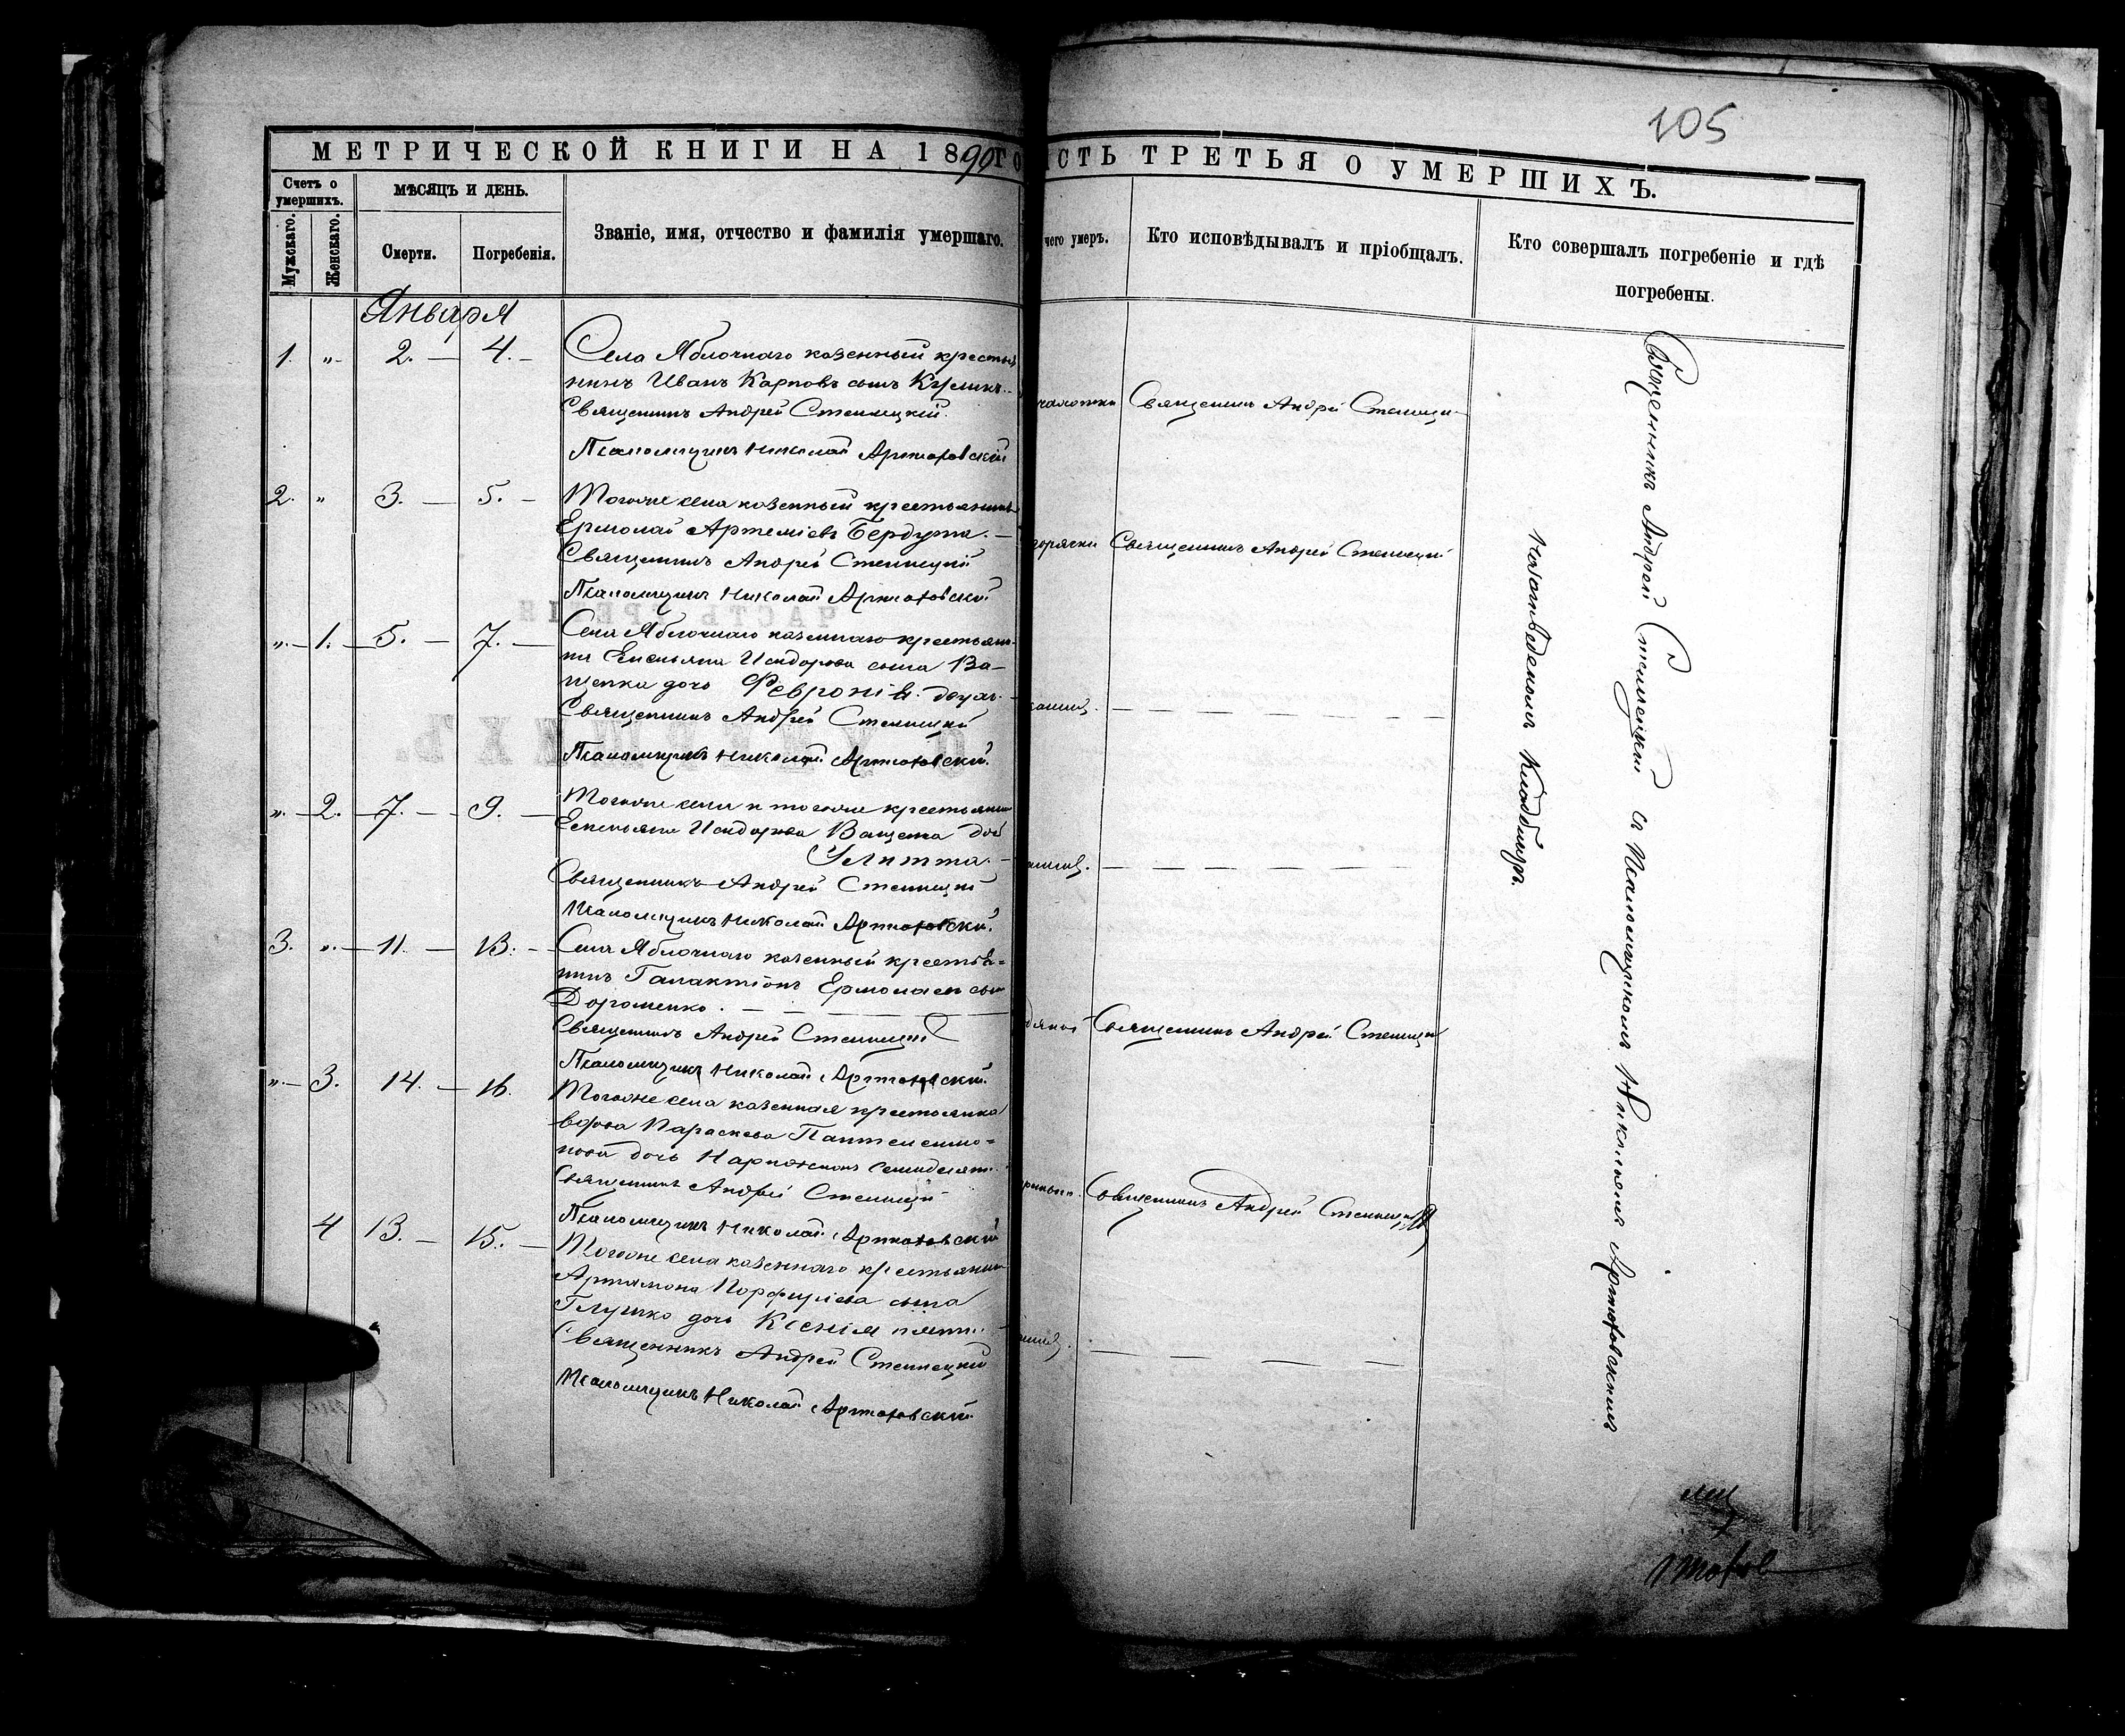 105
МЕТРИЧЕСКОЙ КНИГИ НА 1890 ГО
СТЬ ТРЕТЬЯ О УМЕРШИХЪ.
Счетъ о умершихъ.
Мужскаго.
Женскаго.
МѢСЯЦЪ И ДЕНЬ.
Смерти.
Погребенія.
Званіе, имя, отчество и фамилія умершаго.
чего умеръ.
Кто исповѣдывалъ и пріобщалъ.
Кто совершалъ погребеніе и гдѣ
погребены.
Января
1. „ 2. — 4. —
Села Яблочнаго казенный крестья
нинъ Иванъ Карповъ сынъ Куликъ.
Священникъ Андрей Стеллецкій.
Псаломщикъ Николай Артюховскій
чахотки
Священникъ Андрей
2. „ 3. — 5. —
Тогоже села казенный крестьянинъ
Ермолай Артеміевъ Бердута. —
Священникъ Андрей Стеллецкій
Псаломщикъ Николай Артюховскій
горячки
Священникъ Андрей Стеллецкій
„ — 1. — 5. — 7. —
Села Яблочнаго казеннаго крестьян
на Емельяна Исидорова сына Ва-
щенка дочь Февронія.
Священникъ Андрей Стеллецкій
Псаломщикъ Николай Артюховскій.
„ — 2. — 7. — 9. —
Тогоже села и тогоже крестьянин
Емельяна Исидорова Ващенка доч
Улитта. —
Священникъ Андрей Стеллецкій
Псаломщикъ Николай Артюховскій.
3. „ — 11. — 13. —
Села Яблочнаго казенный крестья=
нинъ Галактіонъ Ермолаевъ сын
Дорошенко. —
Священникъ Андрей Стеллецкій
Псаломщикъ Николай Артюховскій.
Священникъ Андрей Стеллецкій
„ — 3. 14. — 16.
Тогоже села казенная крестьянка
вдова Параскева Пантелеимо=
нова дочь
Священникъ Андрей Стеллецкій
Псаломщикъ Николай Артюховскій
Священникъ Андрей Стеллецкій
4 13. — 15. —
Тогоже села казеннаго крестьянин
Артамона Порфиріева сына
Глушко дочь Ксенія
Священникъ Андрей Стеллецкій
Псаломщикъ Николай Артюховскій
Священникъ Андрей Стеллецкій съ Псаломщикомъ Николаемъ Артюховскимъ
на отведеномъ кладбищѣ.